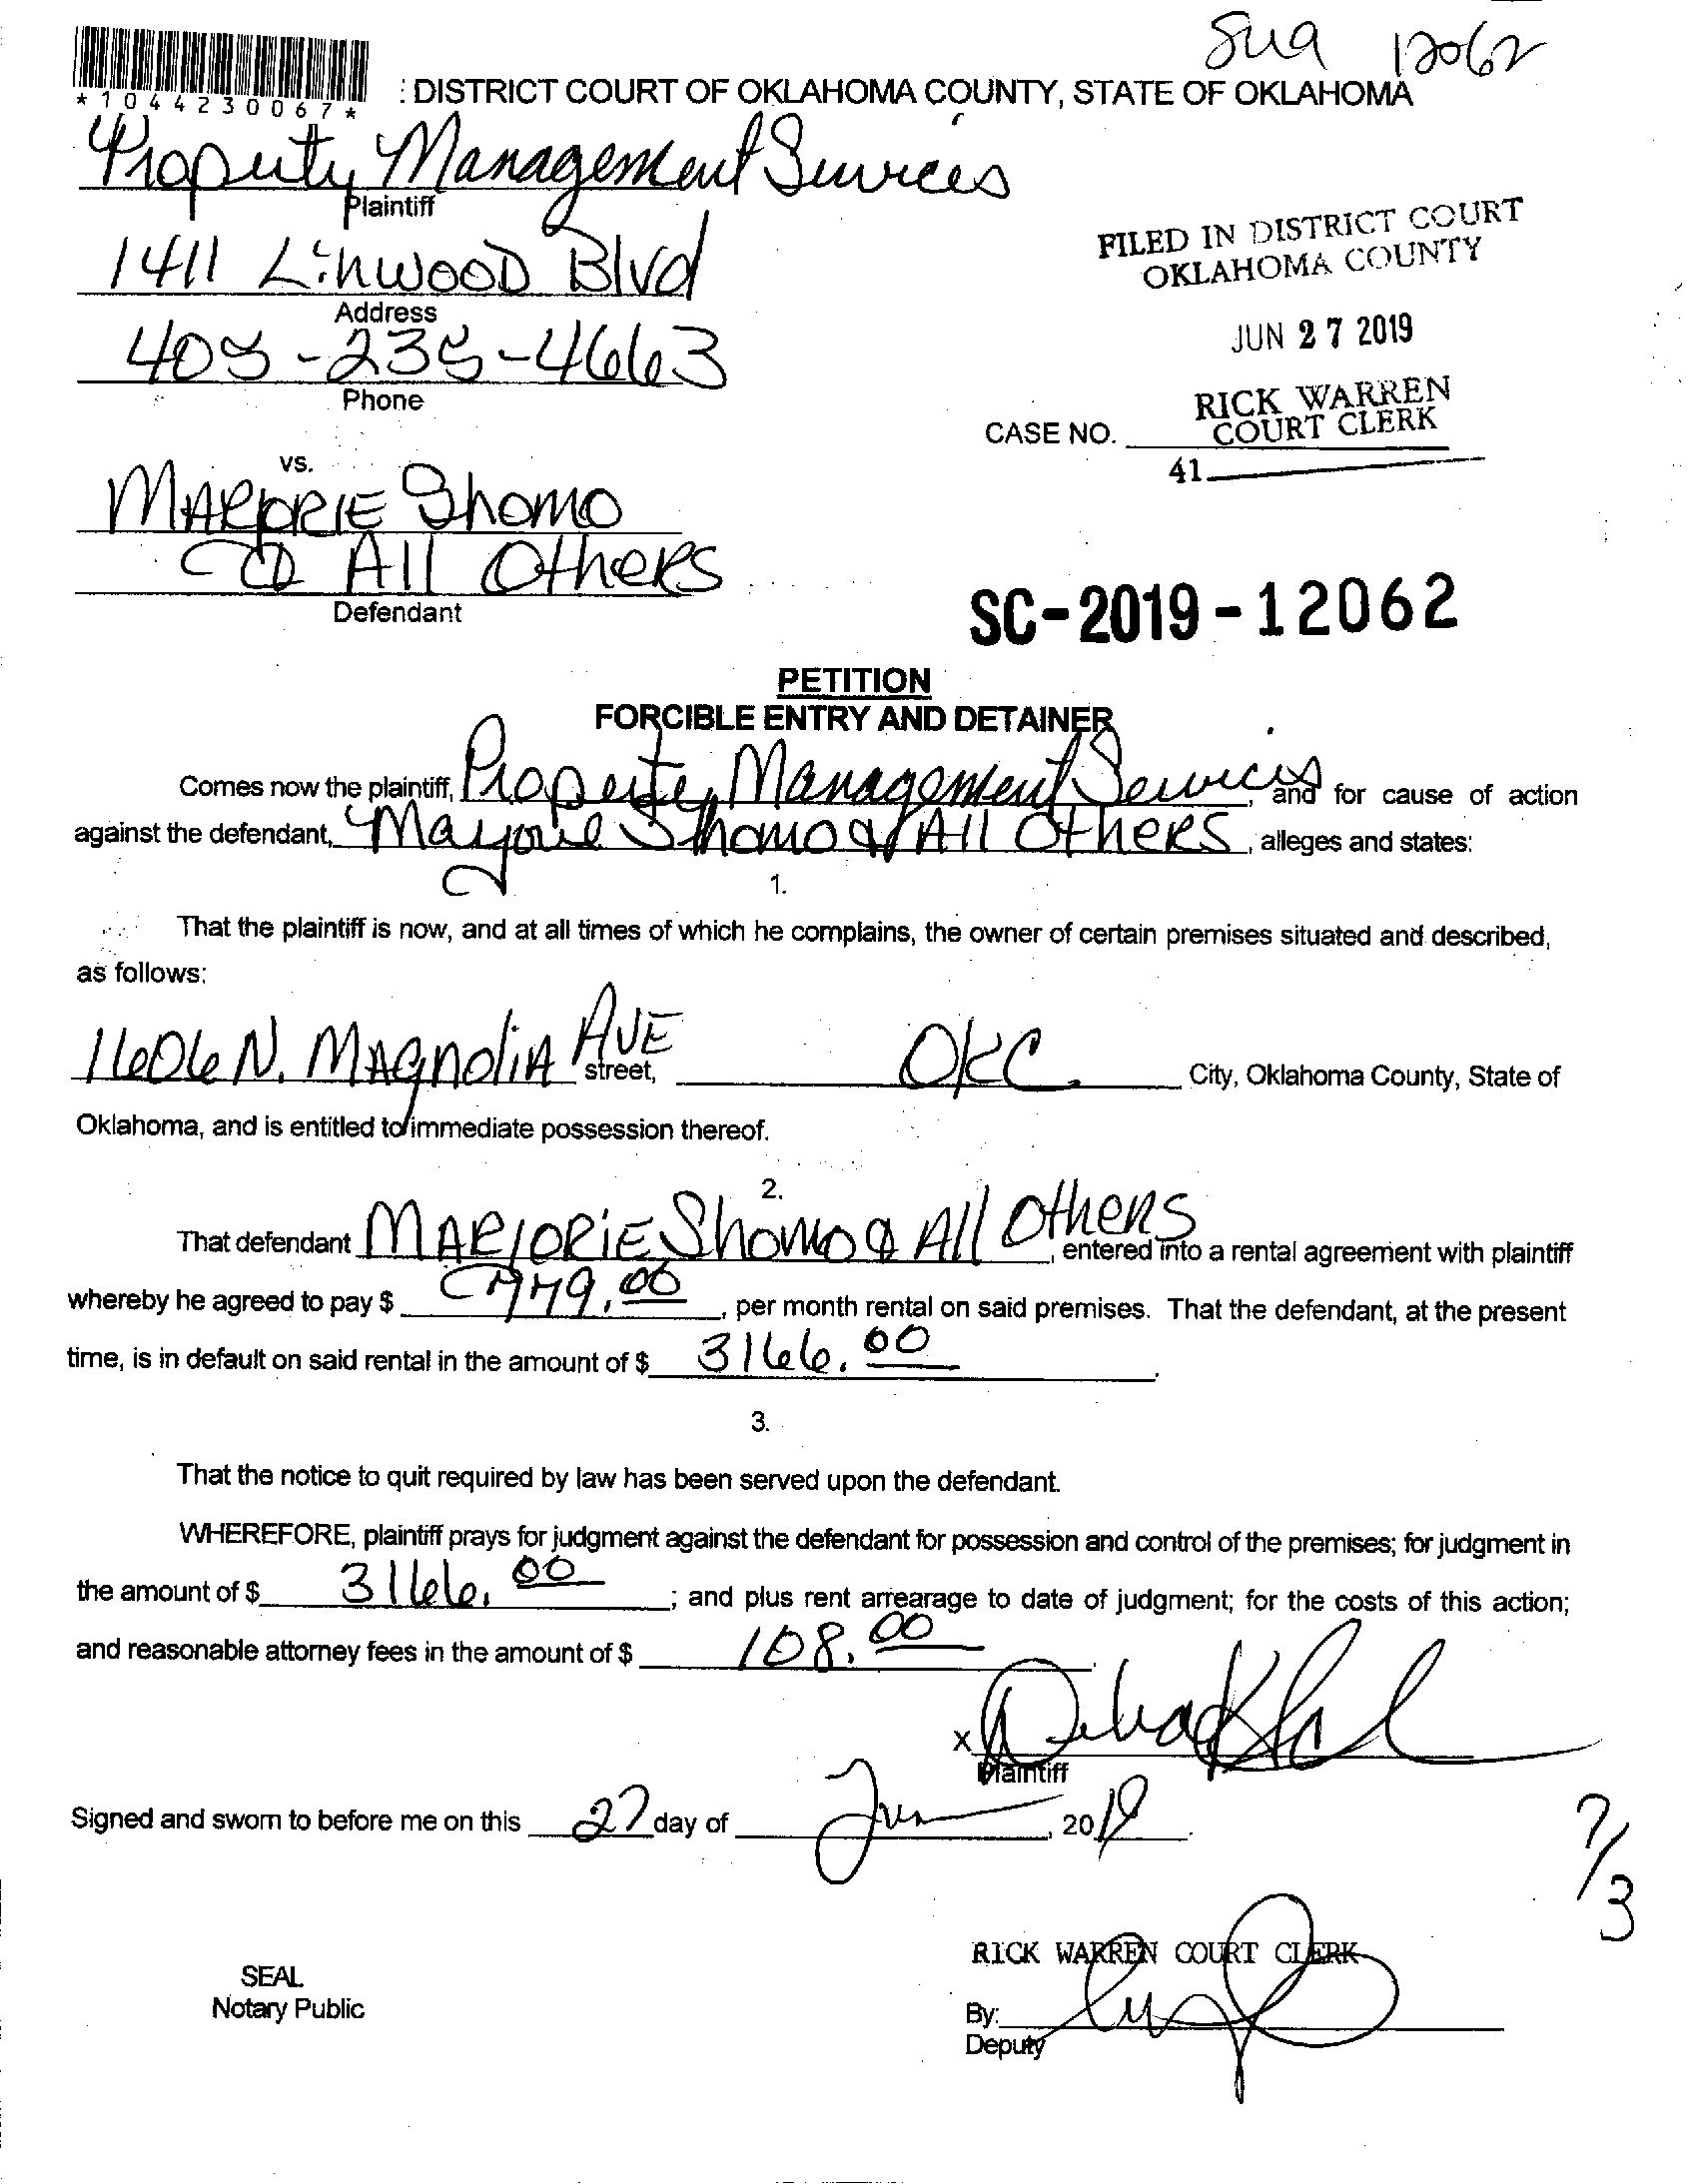 Sua 12062
*1044230067*
: DISTRICT COURT OF OKLAHOMA COUNTY, STATE OF OKLAHOMA
Property Management Services
Plaintiff
1411 LinwOOD Blvd
Address
405-235-4663
Phone
FILED IN DISTRICT COURT
OKLAHOMA COUNTY
JUN 27 2019
RICK WARREN
COURT CLERK
CASE NO.
41
vs.
MARJORIE Shomo
& All OtheRS
Defendant
SC-2019-12062
PETITION
FORCIBLE ENTRY AND DETAINER
Comes now the plaintiff, Property Management Services, and for cause of action
against the defendant, Marjorie Shomo & All OtheRS, alleges and states:
1.
That the plaintiff is now, and at all times of which he complains, the owner of certain premises situated and described,
as follows:
1606 N. MAgnoliA AVE street, OKC City, Oklahoma County, State of
Oklahoma, and is entitled to immediate possession thereof.
2.
That defendant MARJORiE Shomo & All OtheRS, entered into a rental agreement with plaintiff
whereby he agreed to pay $ , per month rental on said premises. That the defendant, at the present
time, is in default on said rental in the amount of $ 3166.00.
3.
That the notice to quit required by law has been served upon the defendant.
WHEREFORE, plaintiff prays for judgment against the defendant for possession and control of the premises; for judgment in
the amount of $ 3166.00; and plus rent arrearage to date of judgment; for the costs of this action;
and reasonable attorney fees in the amount of $ 108.00
X
Plaintiff
Signed and sworn to before me on this 27 day of Jun, 2019.
7/3
RICK WARREN COURT CLERK
SEAL
Notary Public
By:
Deputy